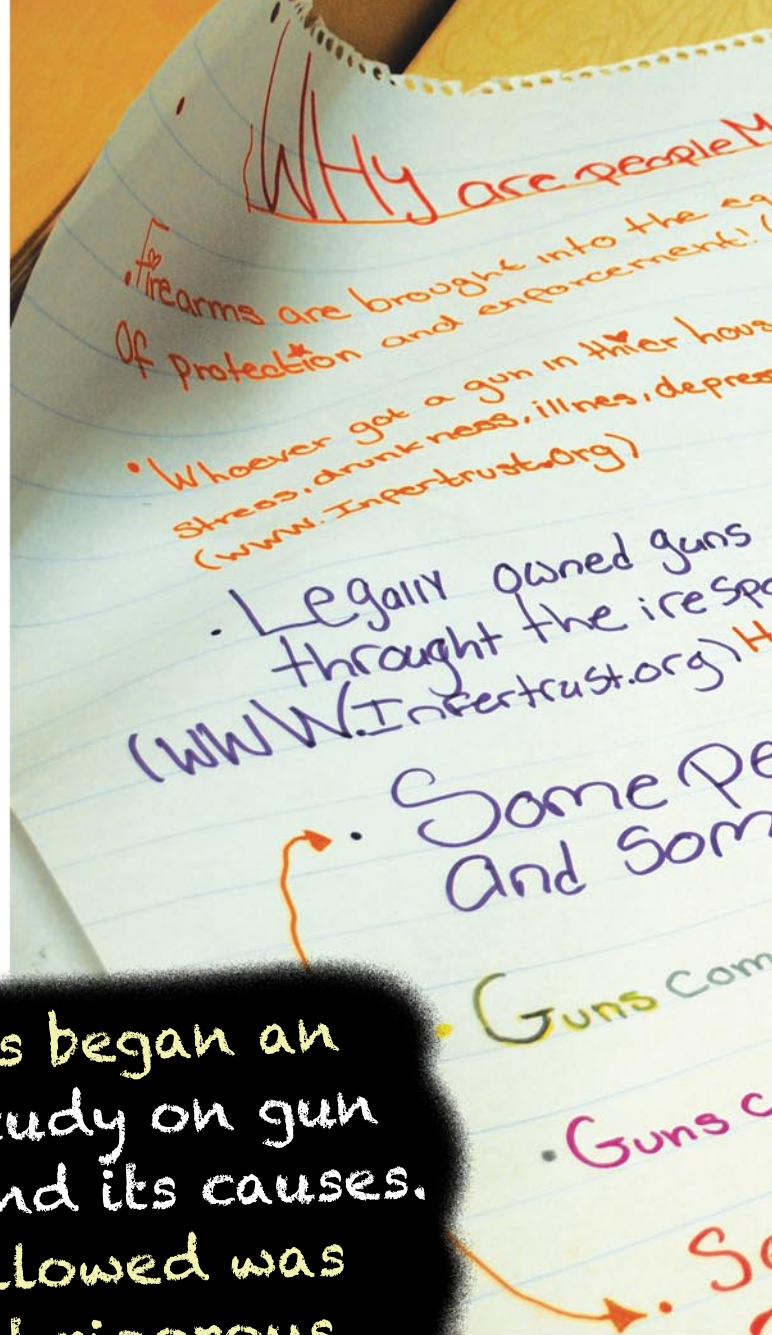 WHy are people M
Firearms are brought into the eq
Of protection and enforcement! (
• Whoever got a gun in thier hous
stress, drunkness, illnes, depres
(www.Infertrust.org)
• Legally owned guns
throught the irespo
(WWW.Infertrust.org) H
• Some Pe
And Som
• Guns com
• Guns c
• So
s began an
tudy on gun
nd its causes.
llowed was
d rigorous